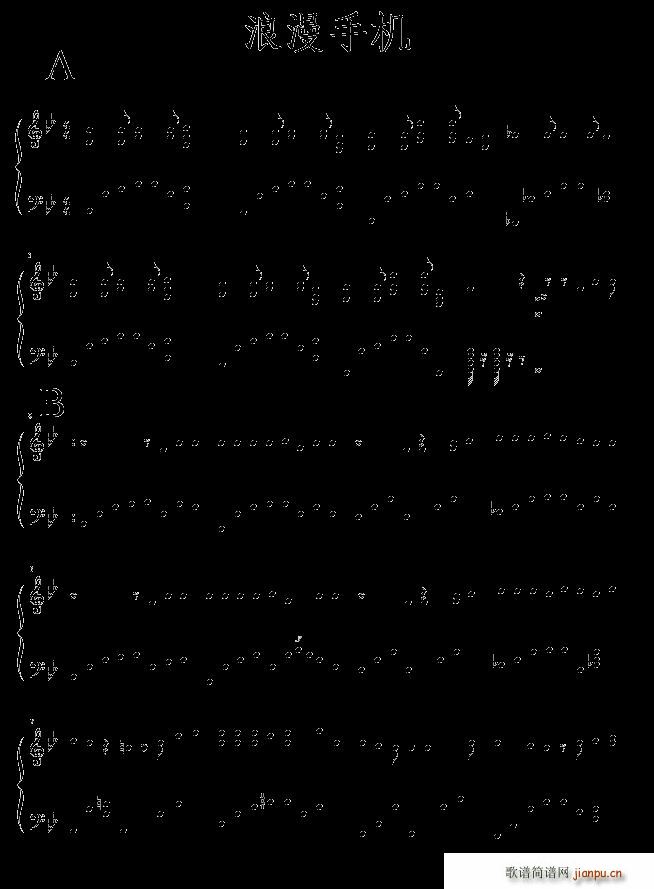 浪漫手机
A
3
B
歌谱简谱网 jianpu.cn